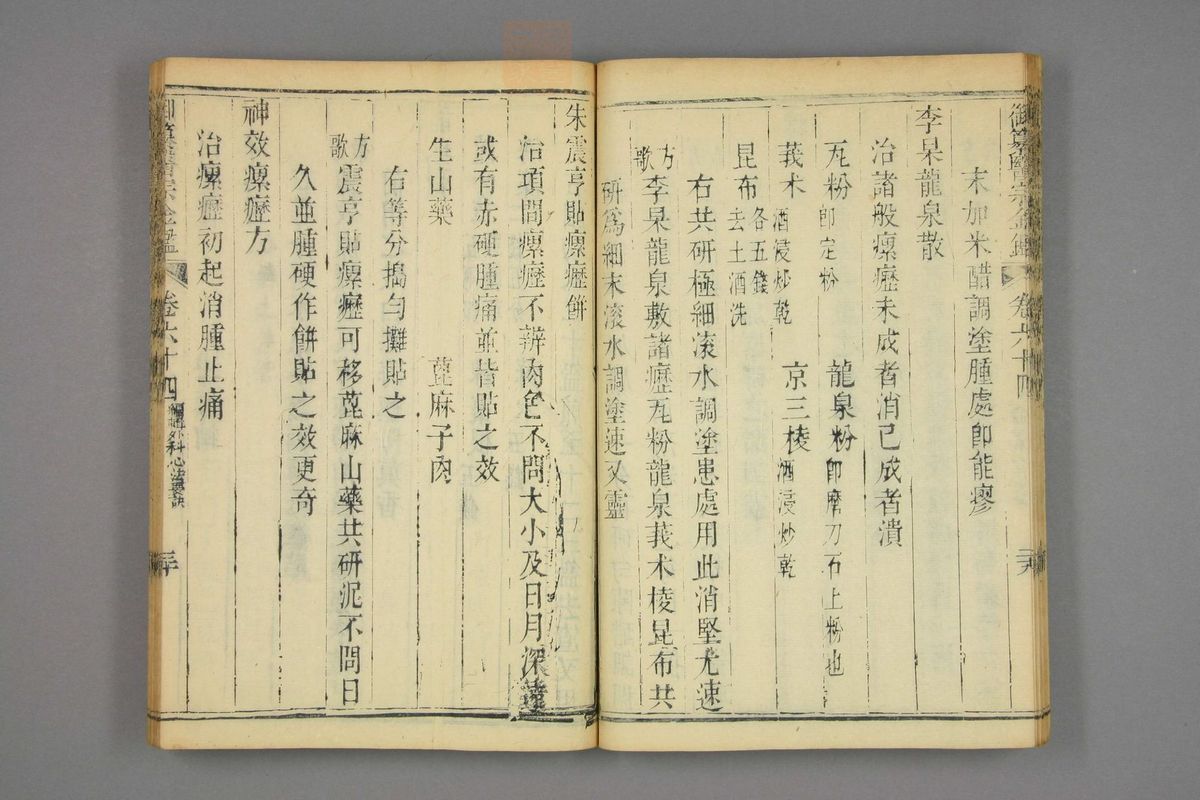 御纂醫宗金鑑 卷六十四
末加米醋調塗腫處即能瘳
李杲龍泉散
治諸般瘰癧未成者消已成者潰
瓦粉即定粉 龍泉粉即磨刀石上粉也
莪术酒浸炒乾 京三棱酒浸炒乾
昆布去土酒洗各五錢
右共研極細滾水調塗患處用此消堅尤速
方歌李杲龍泉敷諸癧瓦粉龍泉莪术棱昆布共
研爲細末滾水調塗速又靈
朱震亨貼瘰癧餅
治項間瘰癧不辨肉色不問大小及日月深遠
或有赤硬腫痛並皆貼之效
生山藥 蓖麻子肉
右等分搗勻攤貼之
方歌震亨貼瘰癧可移蓖麻山藥共研泥不問日
久並腫硬作餅貼之效更奇
神效瘰癧方
治瘰癧初起消腫止痛
御纂醫宗金鑑 卷六十四 編輯外科心法要訣